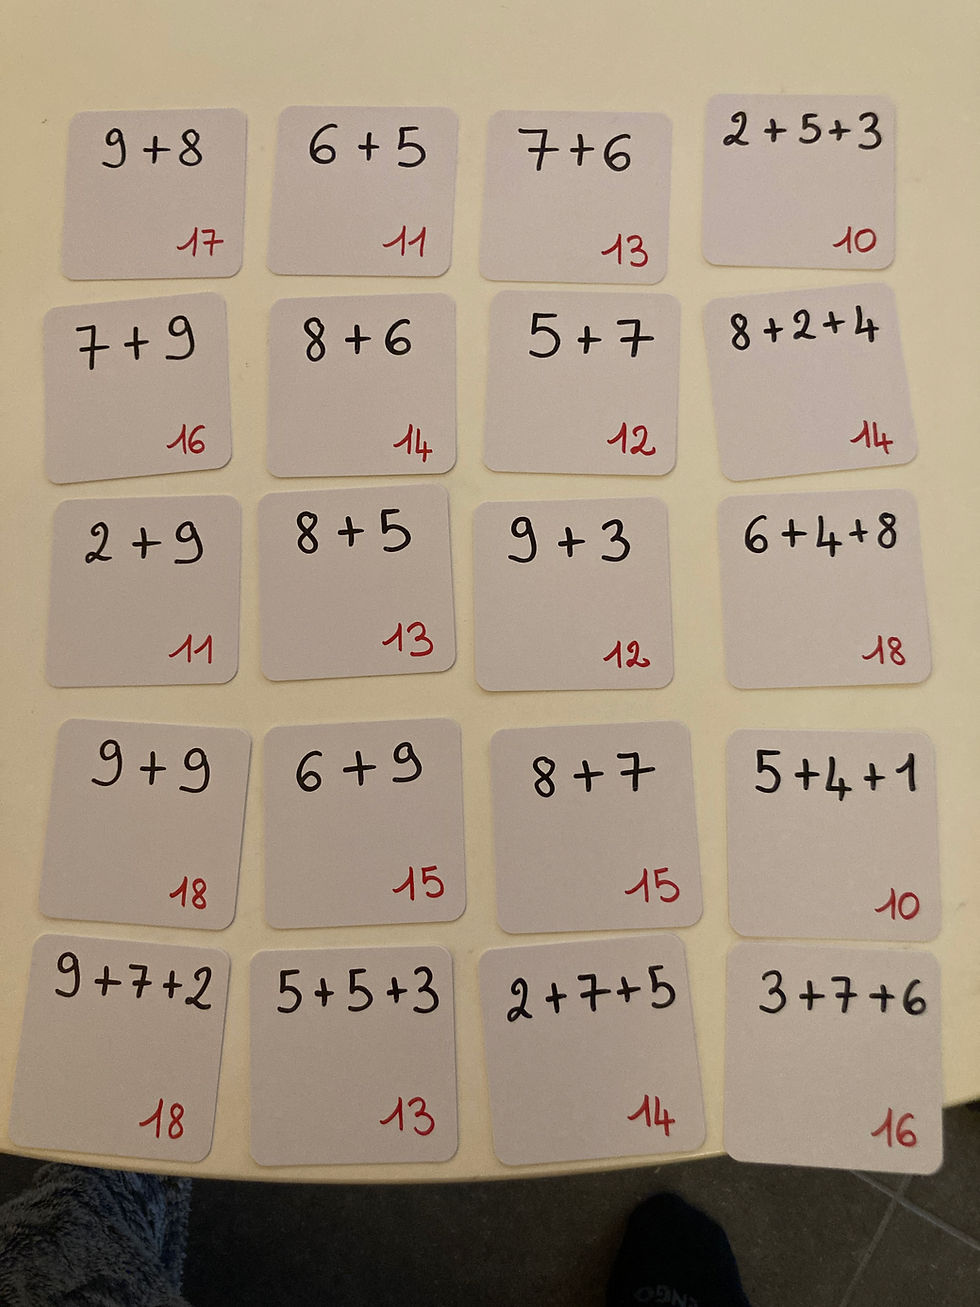 9+8
17
6+5
11
7+6
13
2+5+3
10
7+9
16
8+6
14
5+7
12
8+2+4
14
2+9
11
8+5
13
9+3
12
6+4+8
18
9+9
18
6+9
15
8+7
15
5+4+1
10
9+7+2
18
5+5+3
13
2+7+5
14
3+7+6
16